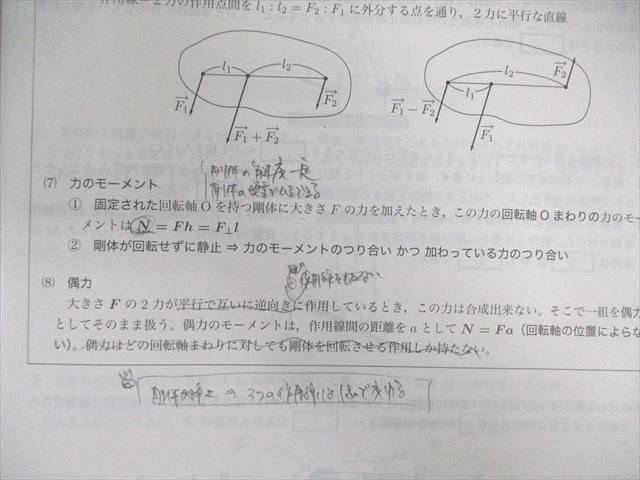 作用線＝2力の作用点間を l₁ : l₂ = F₂ : F₁ に外分する点を通り，2力に平行な直線
l₁ l₂
F₁→ F₂→
F₁→ + F₂→
l₂ F₂→
l₁
F₁→ − F₂→
F₁→
剛体の 角速度一定
剛体の
(7) 力のモーメント
① 固定された回転軸 O を持つ剛体に大きさ F の力を加えたとき，この力の回転軸 O まわりの力のモー
メントは N = Fh = F⊥l
② 剛体が回転せずに静止 ⇒ 力のモーメントのつり合い かつ 加わっている力のつり合い
(8) 偶力
作用線をもたない
大きさ F の 2 力が平行で互いに逆向きに作用しているとき，この力は合成出来ない。そこで一組を偶力
としてそのまま扱う。偶力のモーメントは，作用線間の距離を a として N = Fa（回転軸の位置によらな
い）。偶力はどの回転軸まわりに対しても剛体を回転させる作用しか持たない。
剛体が静止 ⇒ 3つの作用線は1点で交わる